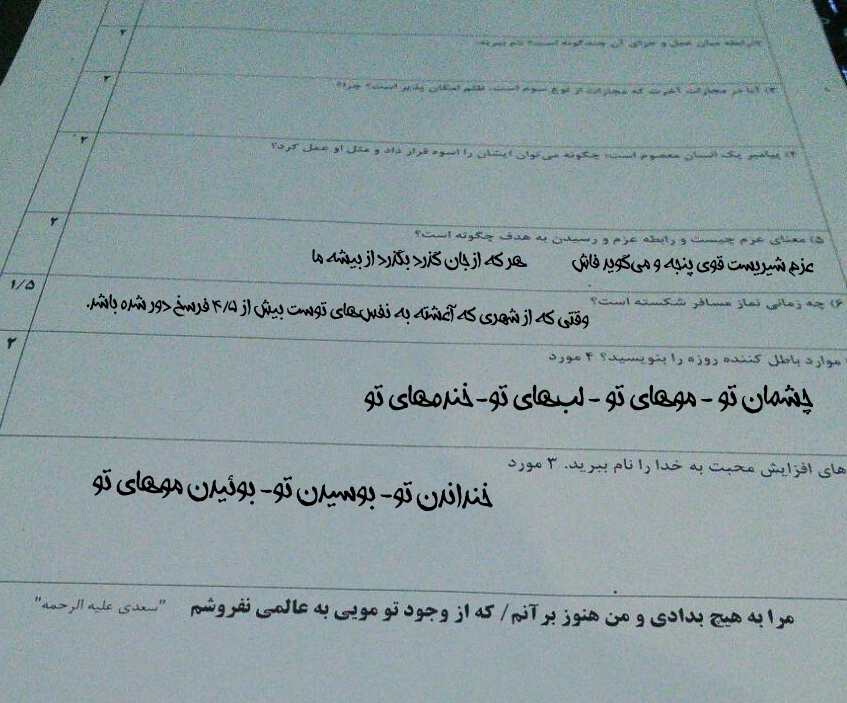 ۲
۲) رابطه میان عمل و جزای آن چندگونه است؟ نام ببرید.
۲
۳) آیا در مجازات آخرت که مجازات از نوع سوم است، ظلم امکان پذیر است؟ چرا؟
۲
۴) پیامبر یک انسان معصوم است؛ چگونه می‌توان ایشان را اسوه قرار داد و مثل او عمل کرد؟
۲
۵) معنای عزم چیست و رابطه عزم و رسیدن به هدف چگونه است؟
عزم شیریست قوی پنجه و می‌گوید فاش هر که از جان گذرد بگذرد از بیشه ما
۱/۵
۶) چه زمانی نماز مسافر شکسته است؟
وقتی که از شهری که آغشته به نفس‌های توست بیش از ۴/۵ فرسخ دور شده باشد.
۲
موارد باطل کننده روزه را بنویسید؟ ۴ مورد
چشمان تو - موهای تو - لب‌های تو - خنده‌های تو
های افزایش محبت به خدا را نام ببرید. ۳ مورد
خنداندن تو - بوسیدن تو - بوئیدن موهای تو
مرا به هیچ بدادی و من هنوز بر آنم / که از وجود تو مویی به عالمی نفروشم "سعدی علیه الرحمه"